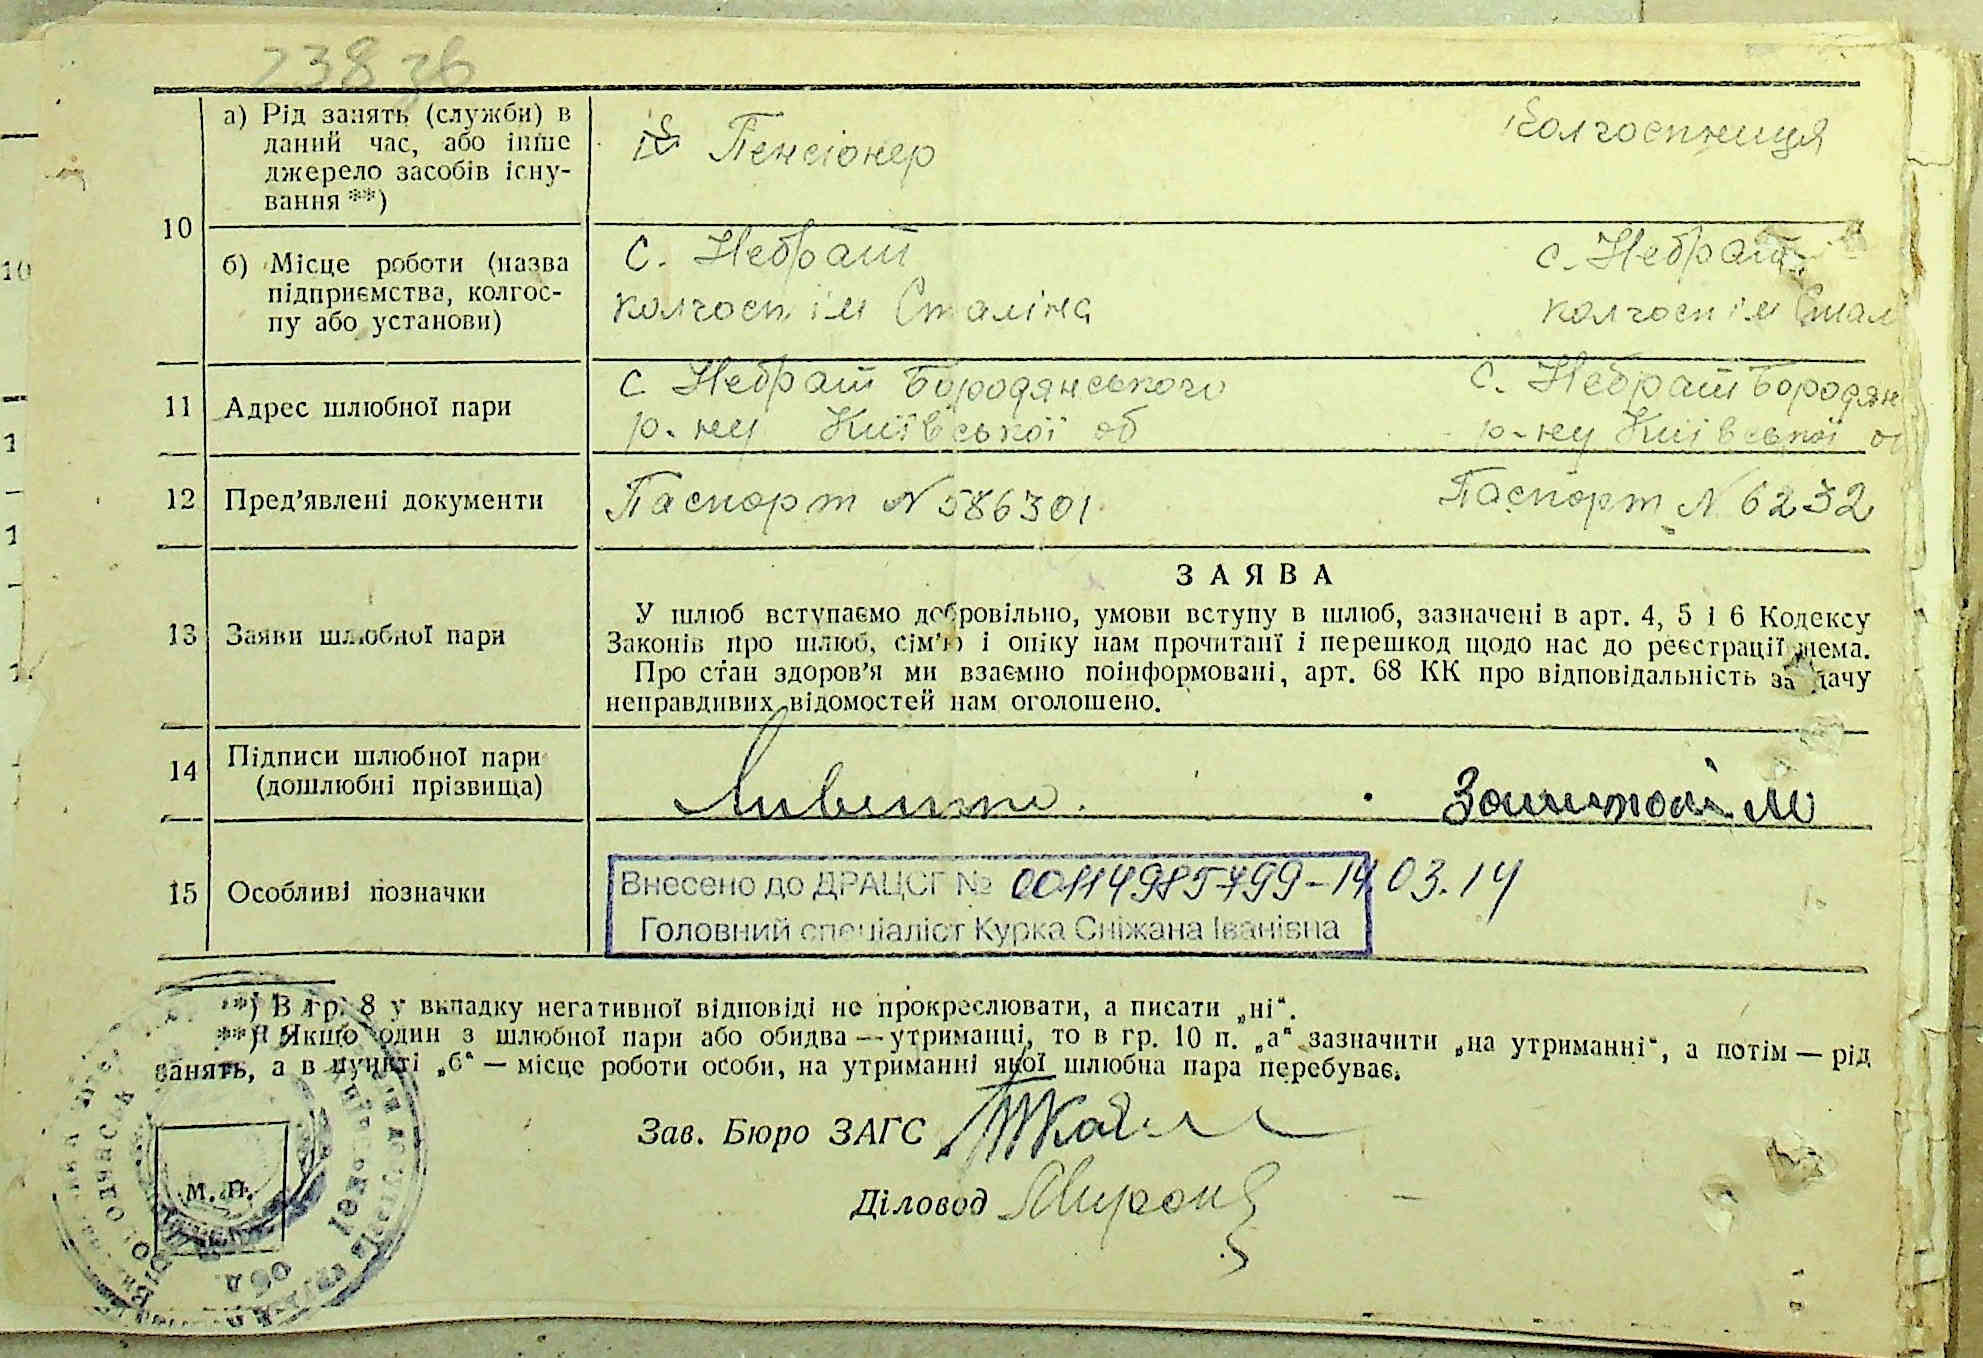 238 зв
10
а) Рід занять (служби) в
даний час, або інше
джерело засобів існу-
вання **)
Пенсіонер
Колгоспниця
б) Місце роботи (назва
підприємства, колгос-
пу або установи)
с. Небрат
колгосп ім Сталіна
с. Небрат
колгосп ім Стал
11 Адрес шлюбної пари
с Небрат Бородянського
р-ну Київської об
с. Небрат Бородян
р-ну Київської о
12 Пред'явлені документи
Паспорт N 586301
Паспорт N 6232
13 Заяви шлюбної пари
ЗАЯВА
У шлюб вступаємо добровільно, умови вступу в шлюб, зазначені в арт. 4, 5 і 6 Кодексу
Законів про шлюб, сім'ю і опіку нам прочитані і перешкод щодо нас до реєстрації нема.
Про стан здоров'я ми взаємно поінформовані, арт. 68 КК про відповідальність за дачу
неправдивих відомостей нам оголошено.
14 Підписи шлюбної пари
(дошлюбні прізвища)
15 Особливі позначки
Внесено до ДРАЦСГ № 00114985799-14.03.14
Головний спеціаліст Курка Сніжана Іванівна
*) В гр. 8 у випадку негативної відповіді не прокреслювати, а писати „ні“.
**) Якщо один з шлюбної пари або обидва — утриманці, то в гр. 10 п. „а“ зазначити „на утриманні“, а потім — рід
занять, а в пункті „б“ — місце роботи особи, на утриманні якої шлюбна пара перебуває.
Зав. Бюро ЗАГС
Діловод
М. П.